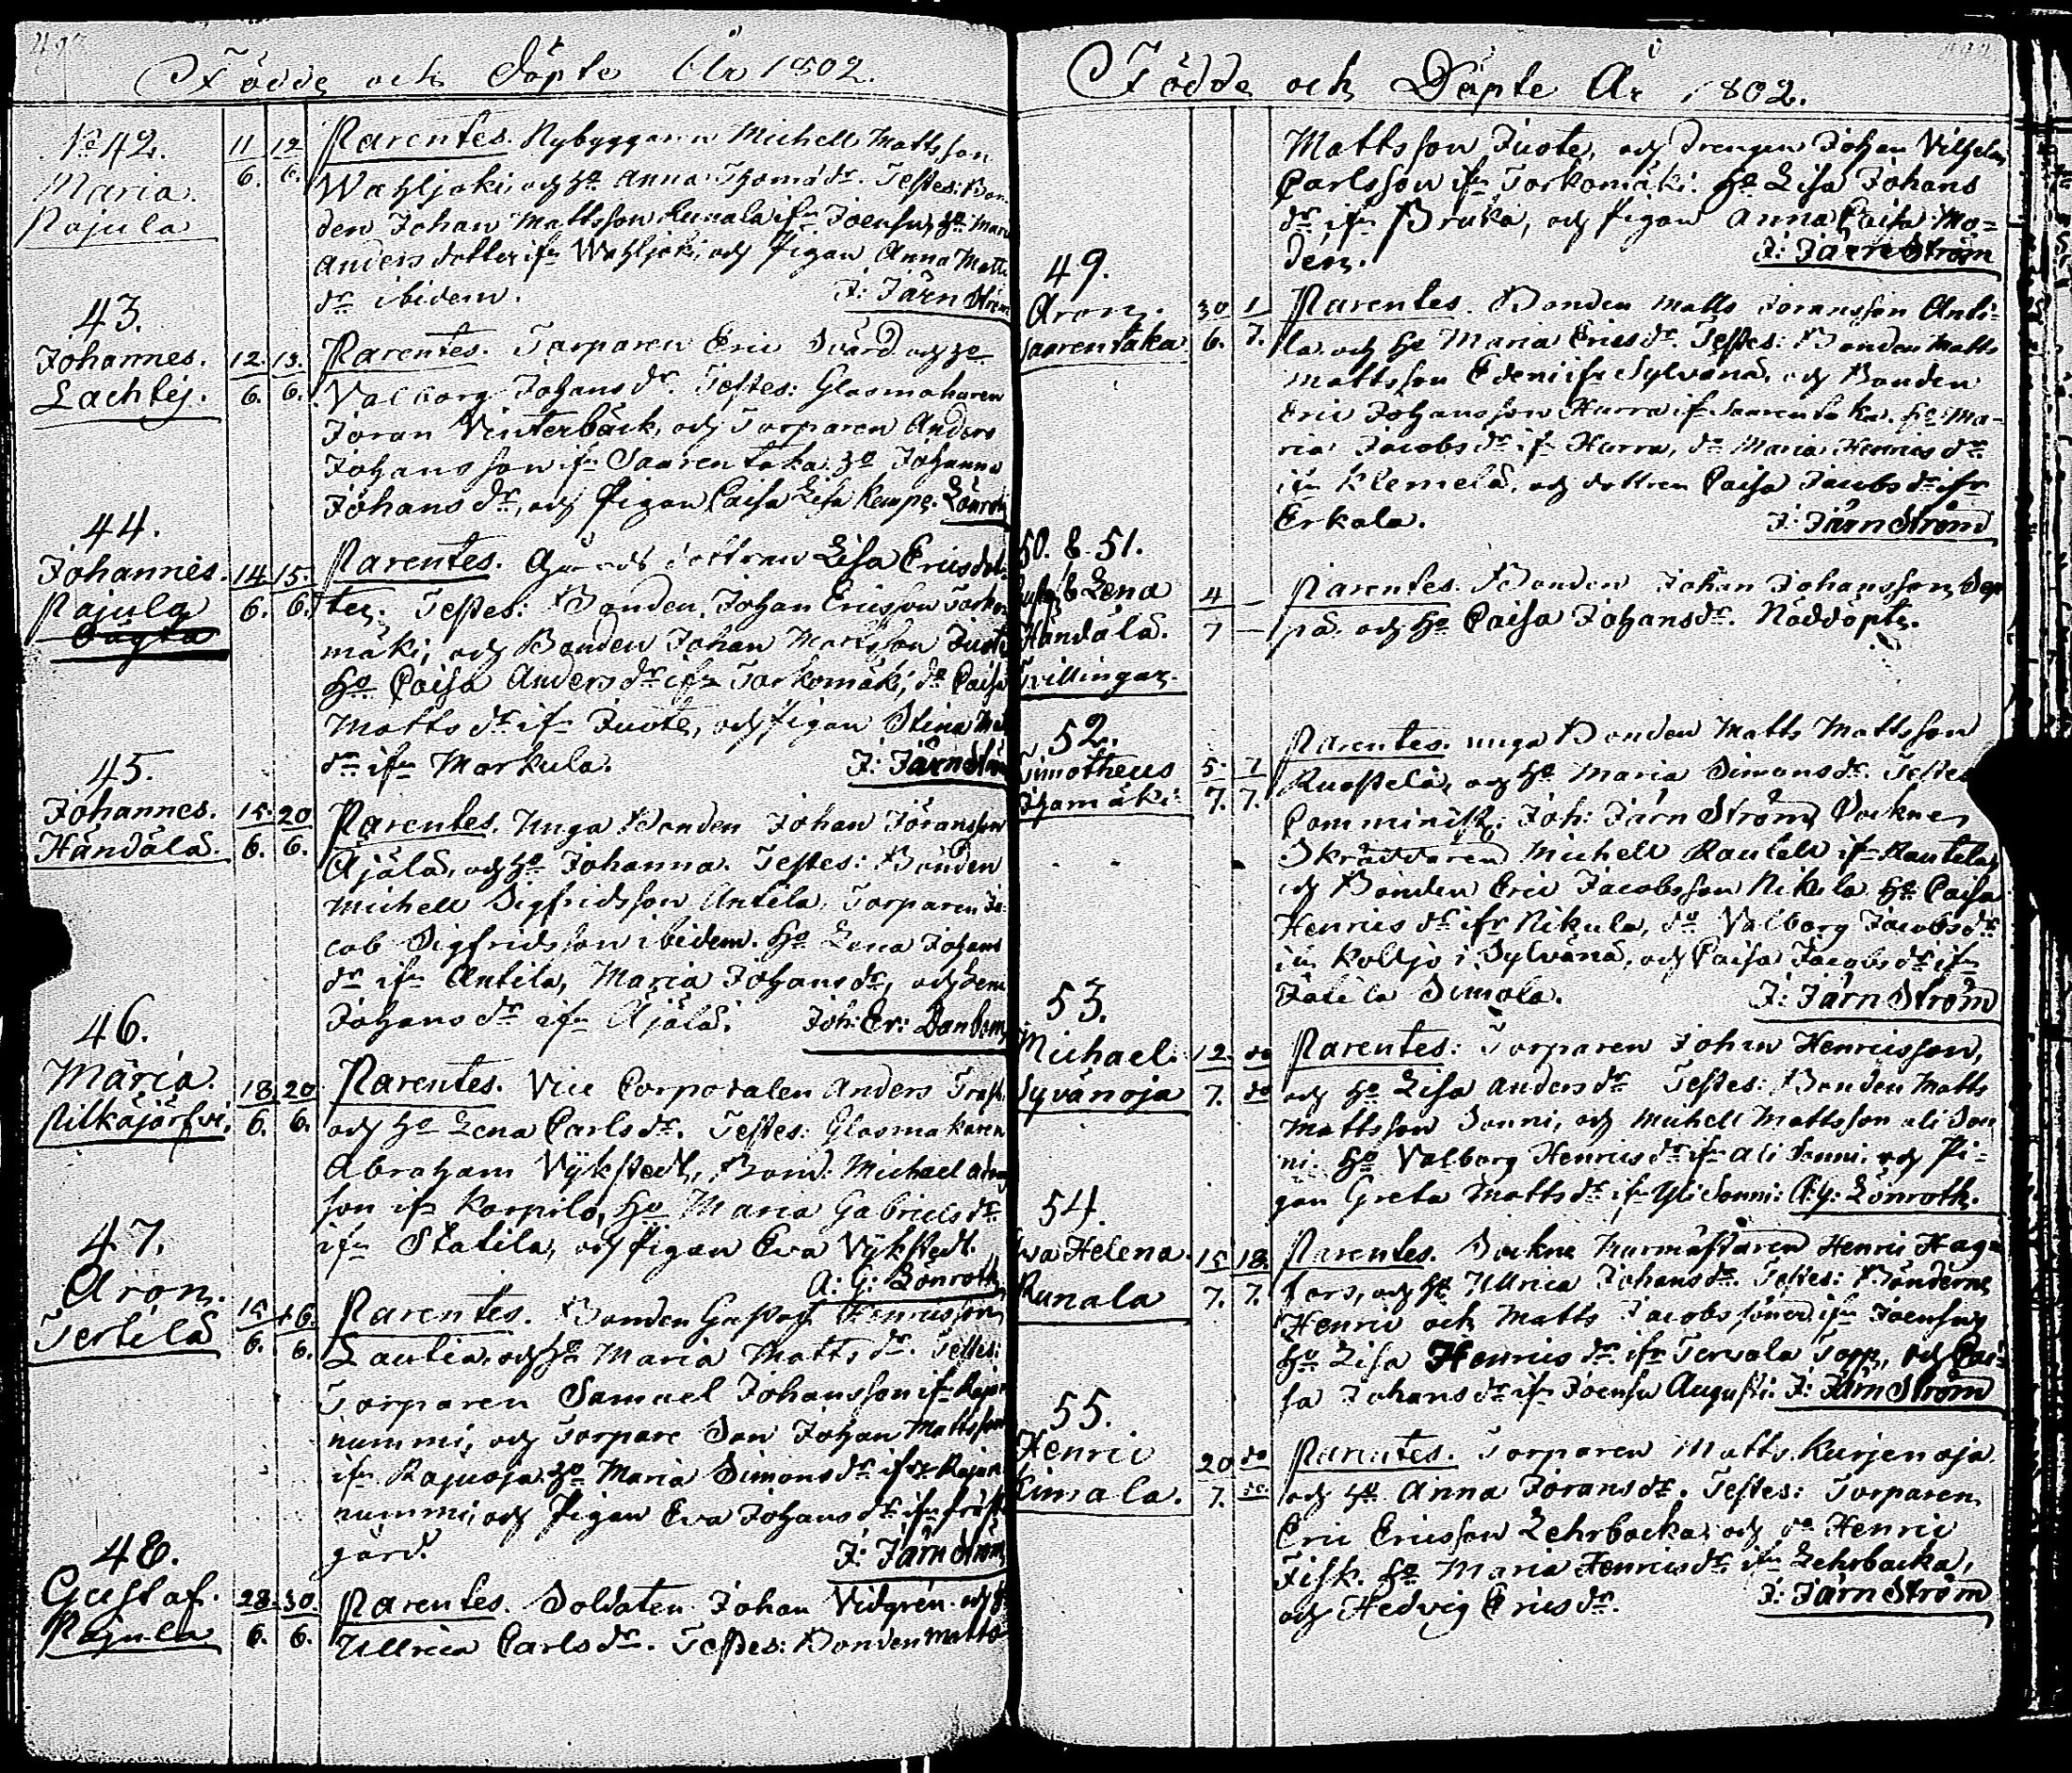 Födde och Döpte År 1802.
No 42.
Maria.
Rajula
11 12
6. 6.
Parentes. Nybyggaren Michell Mattsson
Wahljoki, och Ho Anna Thomædr. Testes: Bon
den Johan Mattsson Kunala ifn Joensu, Ho Maria
Anders dotter ifn Wahljoki, och Pigan Anna Matts
dr ibidem. J: Järnström
43.
Johannes.
Lachtej.
12. 13.
6. 6.
Parentes. Torparen Eric Svärd och Ho
Valborg Johansdr. Testes: Glasmakaren
Jöran Vinterbäck, och Torparen Anders
Johansson ifn Saarentaka. Ho Johanna
Johansdr, och Pigan Caisa Lisa Kempe. Lönroth
44.
Johannes.
Rajula
14 15.
6. 6.
Parentes. dottren Lisa Ericsdot
ter. Testes: Bonden Johan Ericsson Torko
mäki, och Bonden Johan Mattsson Juote
Ho Caisa Andersdr ifn Torkomäki, do Caisa
Mattsdr ifn Juote, och Pigan Stina Matts
dr ifn Markula. J: Järnström
45.
Johannes.
Händälä.
15. 20
6. 6.
Parentes. Unga Bonden Johan Jöransson
Äjälä, och Ho Johanna. Testes: Bonden
Michell Sigfridsson Antila, Torparen Ja
cob Sigfridsson ibidem. Ho Lena Johans
dr ifn Antila, Maria Johansdr, och Lena
Johansdr ifn Äjälä. Joh: Er: Danbom
46.
Maria.
Pitkäjärfvi.
18 20
6. 6.
Parentes. Vice Corporalen Anders Trast
och Ho Lena Carlsdr. Testes: Glasmakaren
Abraham Vÿkstedt, Bond: Michael Abra
son ifn Korpila, Ho Maria Gabrielsdr
ifn Statila, och Pigan Eva Vÿkstedt.
A: G: Lönroth
47.
Aron.
Tertilä
15 16.
6. 6.
Parentes. Bonden Gustaf Henricsson
Lautia, och Ho Maria Mattsdr. Testes:
Torparen Samuel Johansson ifn Rajan
nummi, och Torpare Son Johan Mattsson
ifn Rajuoja. Ho Maria Simonsdr ifn Rajan
nummi, och Pigan Eva Johansdr ifn Präst
gård. J: Järnström
48.
Gustaf.
Rajula
28. 30.
6. 6.
Parentes. Soldaten Johan Vidgren och Ho
Ullrica Carlsdr. Testes: Bonden Matts
Födde och Döpte År 1802.
Mattsson Juote, och Drengen Johan Vilhelm
Carlsson ifn Torkomäki. Ho Lisa Johans
dr ifn Bruka, och Pigan Anna Caisa Mo=
dén. J: Järnström
49.
Aron.
Saarentaka
30 1
6. 7.
Parentes. Bonden Matts Jöransson Anti=
la och Ho Maria Ericsdr. Testes: Bonden Matts
Mattsson Edeni ifn Sylvänä, och Bonden
Eric Johansson Hurra ifn Saarentaka. Ho Ma=
ria Jacobsdr ifn Hurra, do Maria Henricsdr
ifn Klemelä, och dottren Caisa Jacobsdr ifn
Erkola. J: Järnström
50. & 51.
& Lena
Händälä.
Tvillingar.
4 —
7 —
Parentes. Bonden Johan Johansson Sep
pä och Ho Caisa Johansdr. Nöddöpte.
52.
Timotheus
Ihamäki
5. 7
7. 7.
Parentes. unga Bonden Matts Mattsson
Ruostela, och Ho Maria Simonsdr. Testes
Comminist: Joh: Järnström, Sockne
Skräddaren Michell Rautell ifn Rautela,
och Bonden Eric Jacobsson Nikula. Ho Caisa
Henricsdr ifn Nikula, do Valborg Jacobsdr
ifn Koltjo i Sylvänä, och Caisa Jacobsdr ifn
Jatila Simola. J: Järnström
53.
Michael.
Syvänoja
12. do
7. do
Parentes: Torparen Johan Henricsson,
och Ho Lisa Andersdr Testes: Bonden Matts
Mattsson Sonni, och Michell Mattsson ali Son
ni. Ho Valborg Henricsdr ifn ali Sonni, och Pi=
gan Greta Mattsdr ifn Yli Sonni: A: G: Lönroth.
54.
Eva Helena.
Kunala
15 18.
7. 7.
Parentes. Sockne Murmästaren Henric Hag
fors, och Ho Ullrica Johansdr. Testes: Bönderne
Henric och Matts Jacobs söner ifn Joensu,
Ho Lisa Henricsdr ifn Tervala Torp, och Cai=
sa Johansdr ifn Joensu Augusti. J: Järnström
55.
Henric
Kimala.
20 do
7. do
Parentes. Torparen Matts Kurjenoja
och Ho Anna Jöransdr. Testes: Torparen
Eric Ericsson Lehrbacka, och do Henric
Fisk. Ho Maria Henricsdr ifn Lehrbacka,
och Hedvig Ericsdr. J: Järnström